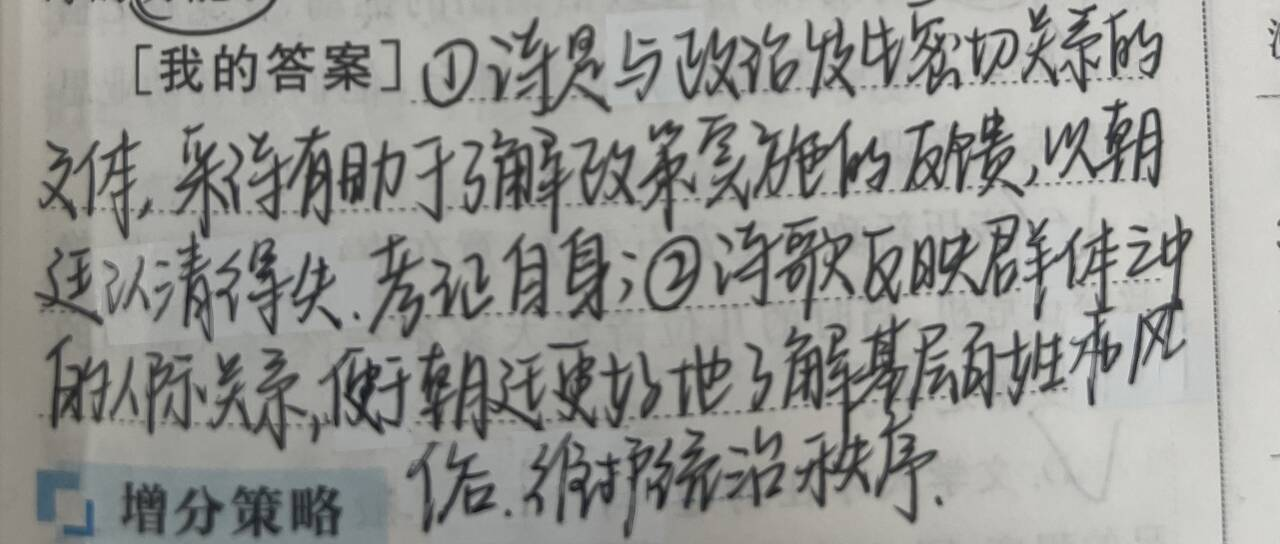 [我的答案] ①诗是与政治发生密切关系的
文体,采诗有助于了解政策实施的反馈,以朝
廷认清得失、考证自身;②诗歌反映群体之中
的人际关系,便于朝廷更好地了解基层百姓和风
俗、维护统治秩序.
增分策略